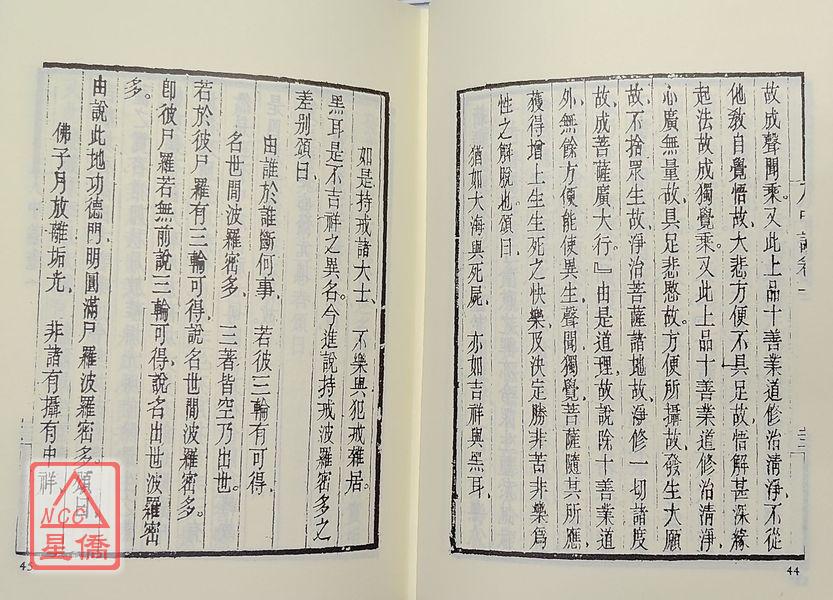 故成聲聞乘。又此上品十善業道修治清淨、不從
他教自覺悟故、大悲方便不具足故、悟解甚深緣
起法故、成獨覺乘。又此上品十善業道修治清淨、
心廣無量故、具足悲愍故、方便所攝故、發生大願
故、不捨眾生故、淨治菩薩諸地故、淨修一切諸度
故、成菩薩廣大行。』由是道理、故說除十善業道
外、無餘方便能使異生聲聞獨覺菩薩隨其所應、
獲得增上生生死之快樂、及決定勝非苦非樂為
性之解脫也。頌曰、
猶如大海與死屍、亦如吉祥與黑耳、
44
如是持戒諸大士、不樂與犯戒雜居。
黑耳是不吉祥之異名。今進說持戒波羅密多之
差別頌曰、
由誰於誰斷何事、若彼三輪有可得、
名世間波羅密多、三著皆空乃出世。
若於彼尸羅有三輪可得、說名世間波羅密多。
卽彼尸羅若無前說三輪可得、說名出世波羅密
多。
由說此地功德門、明圓滿尸羅波羅密多頌曰、
佛子月放離垢光、非諸有攝有中祥、
45
NCC
星僑